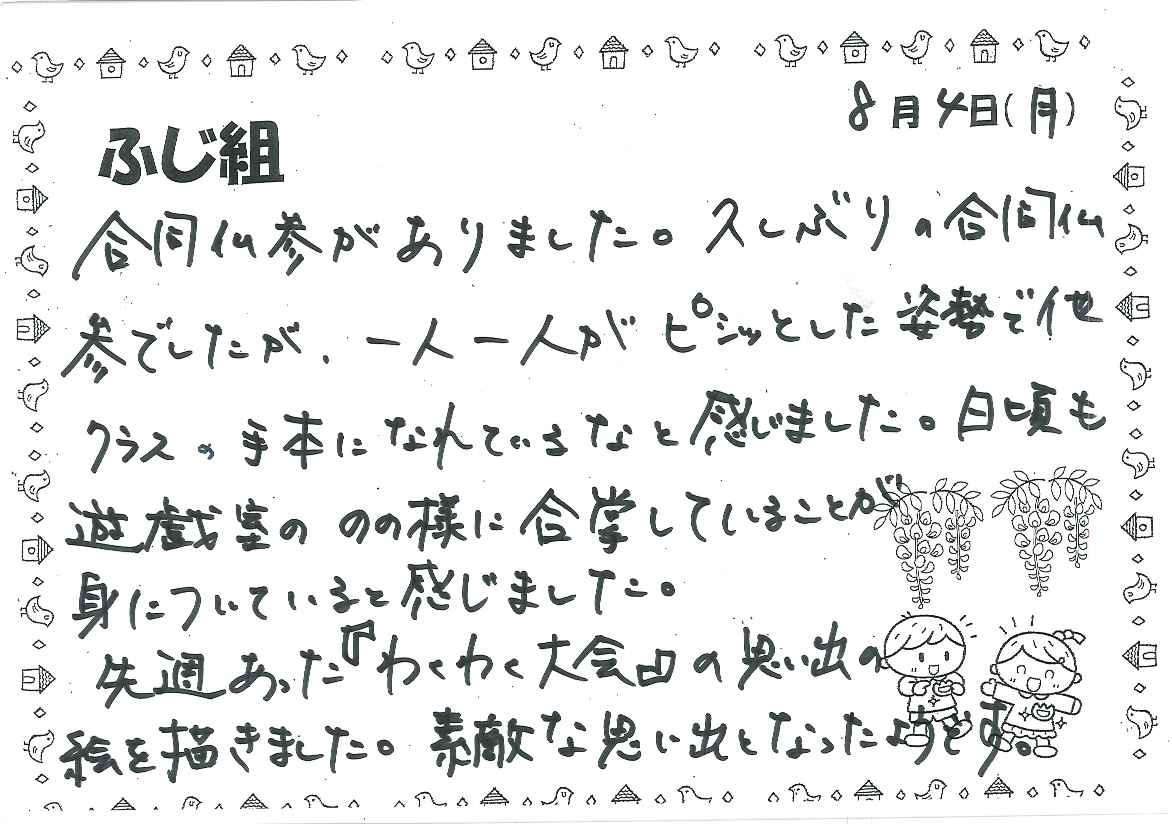 8月4日(月)
ふじ組
合同仏参がありました。久しぶりの合同仏
参でしたが、一人一人がピシッとした姿勢で他
クラスの手本になれているなと感じました。日頃も
遊戯室ののの様に合掌していることが
身についていると感じました。
先週あった『わくわく大会』の思い出の
絵を描きました。素敵な思い出となったようです。